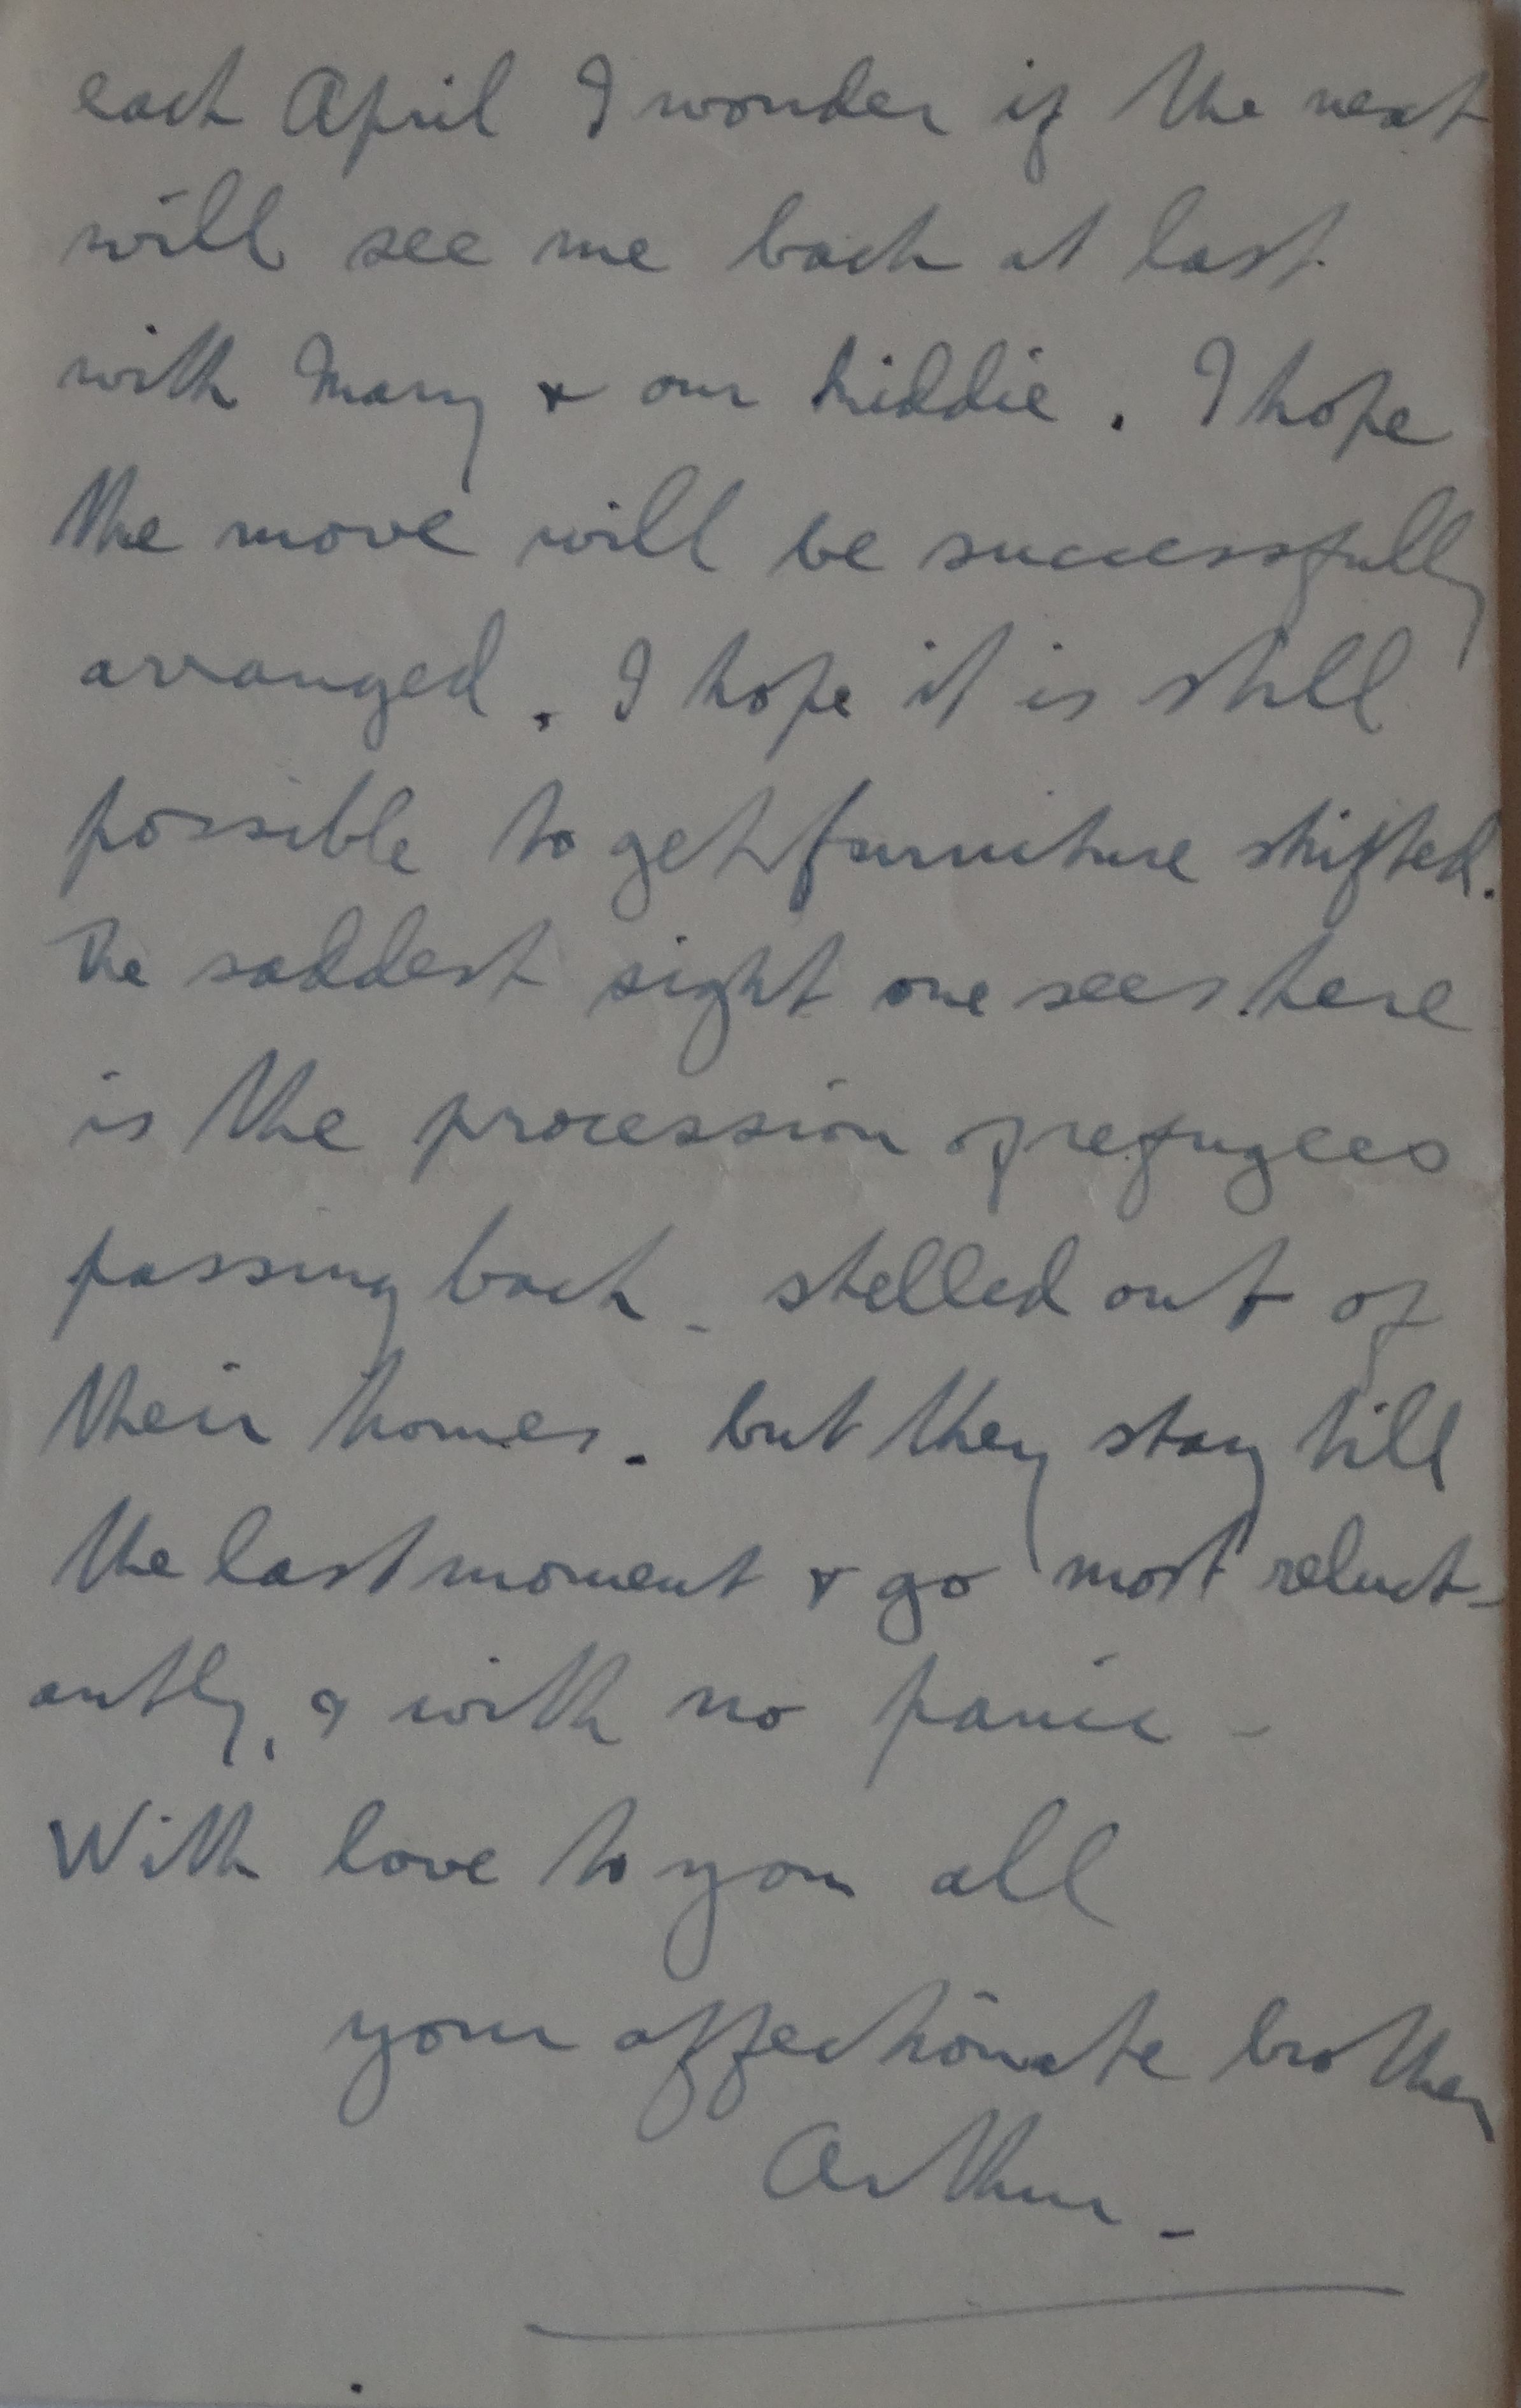 each April I wonder if the next
will see me back at last
with Mary & our kiddie. I hope
the move will be successfully
arranged. I hope it is still
possible to get furniture shifted.
The saddest sight one sees here
is the procession of refugees
passing back - shelled out of
their homes - but they stay till
the last moment & go most reluct-
antly, & with no panic -
With love to you all
your affectionate brother
Arthur -